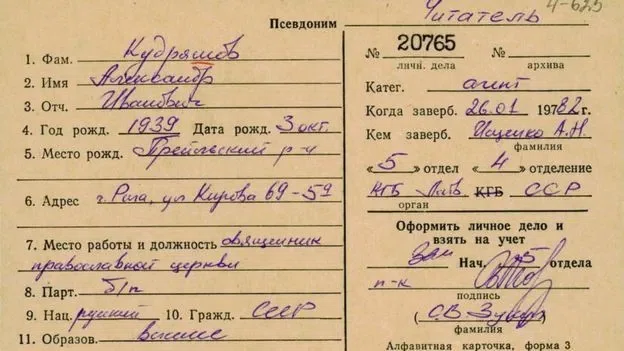 Псевдоним Читатель
4-623
1. Фам. Кудряшов
2. Имя Александр
3. Отч. Иванович
4. Год рожд. 1939 Дата рожд. 3 окт.
5. Место рожд. Прейльский р-н
6. Адрес г. Рига, ул Кирова 69-59
7. Место работы и должность священник
православной церкви
8. Парт. б/п
9. Нац. русский 10. Гражд. СССР
11. Образов. высшее
№ 20765 №
личн. дела архива
Катег. агент
Когда заверб. 26.01 19782 г.
Кем заверб. Ищенко А.Н.
фамилия
«5» отдел «4» отделение
КГБ Латв КГБ ССР
орган
Оформить личное дело и
взять на учет
Зам Нач. 5 отдела
п-к
подпись
(С.В. )
фамилия
Алфавитная карточка, форма 3